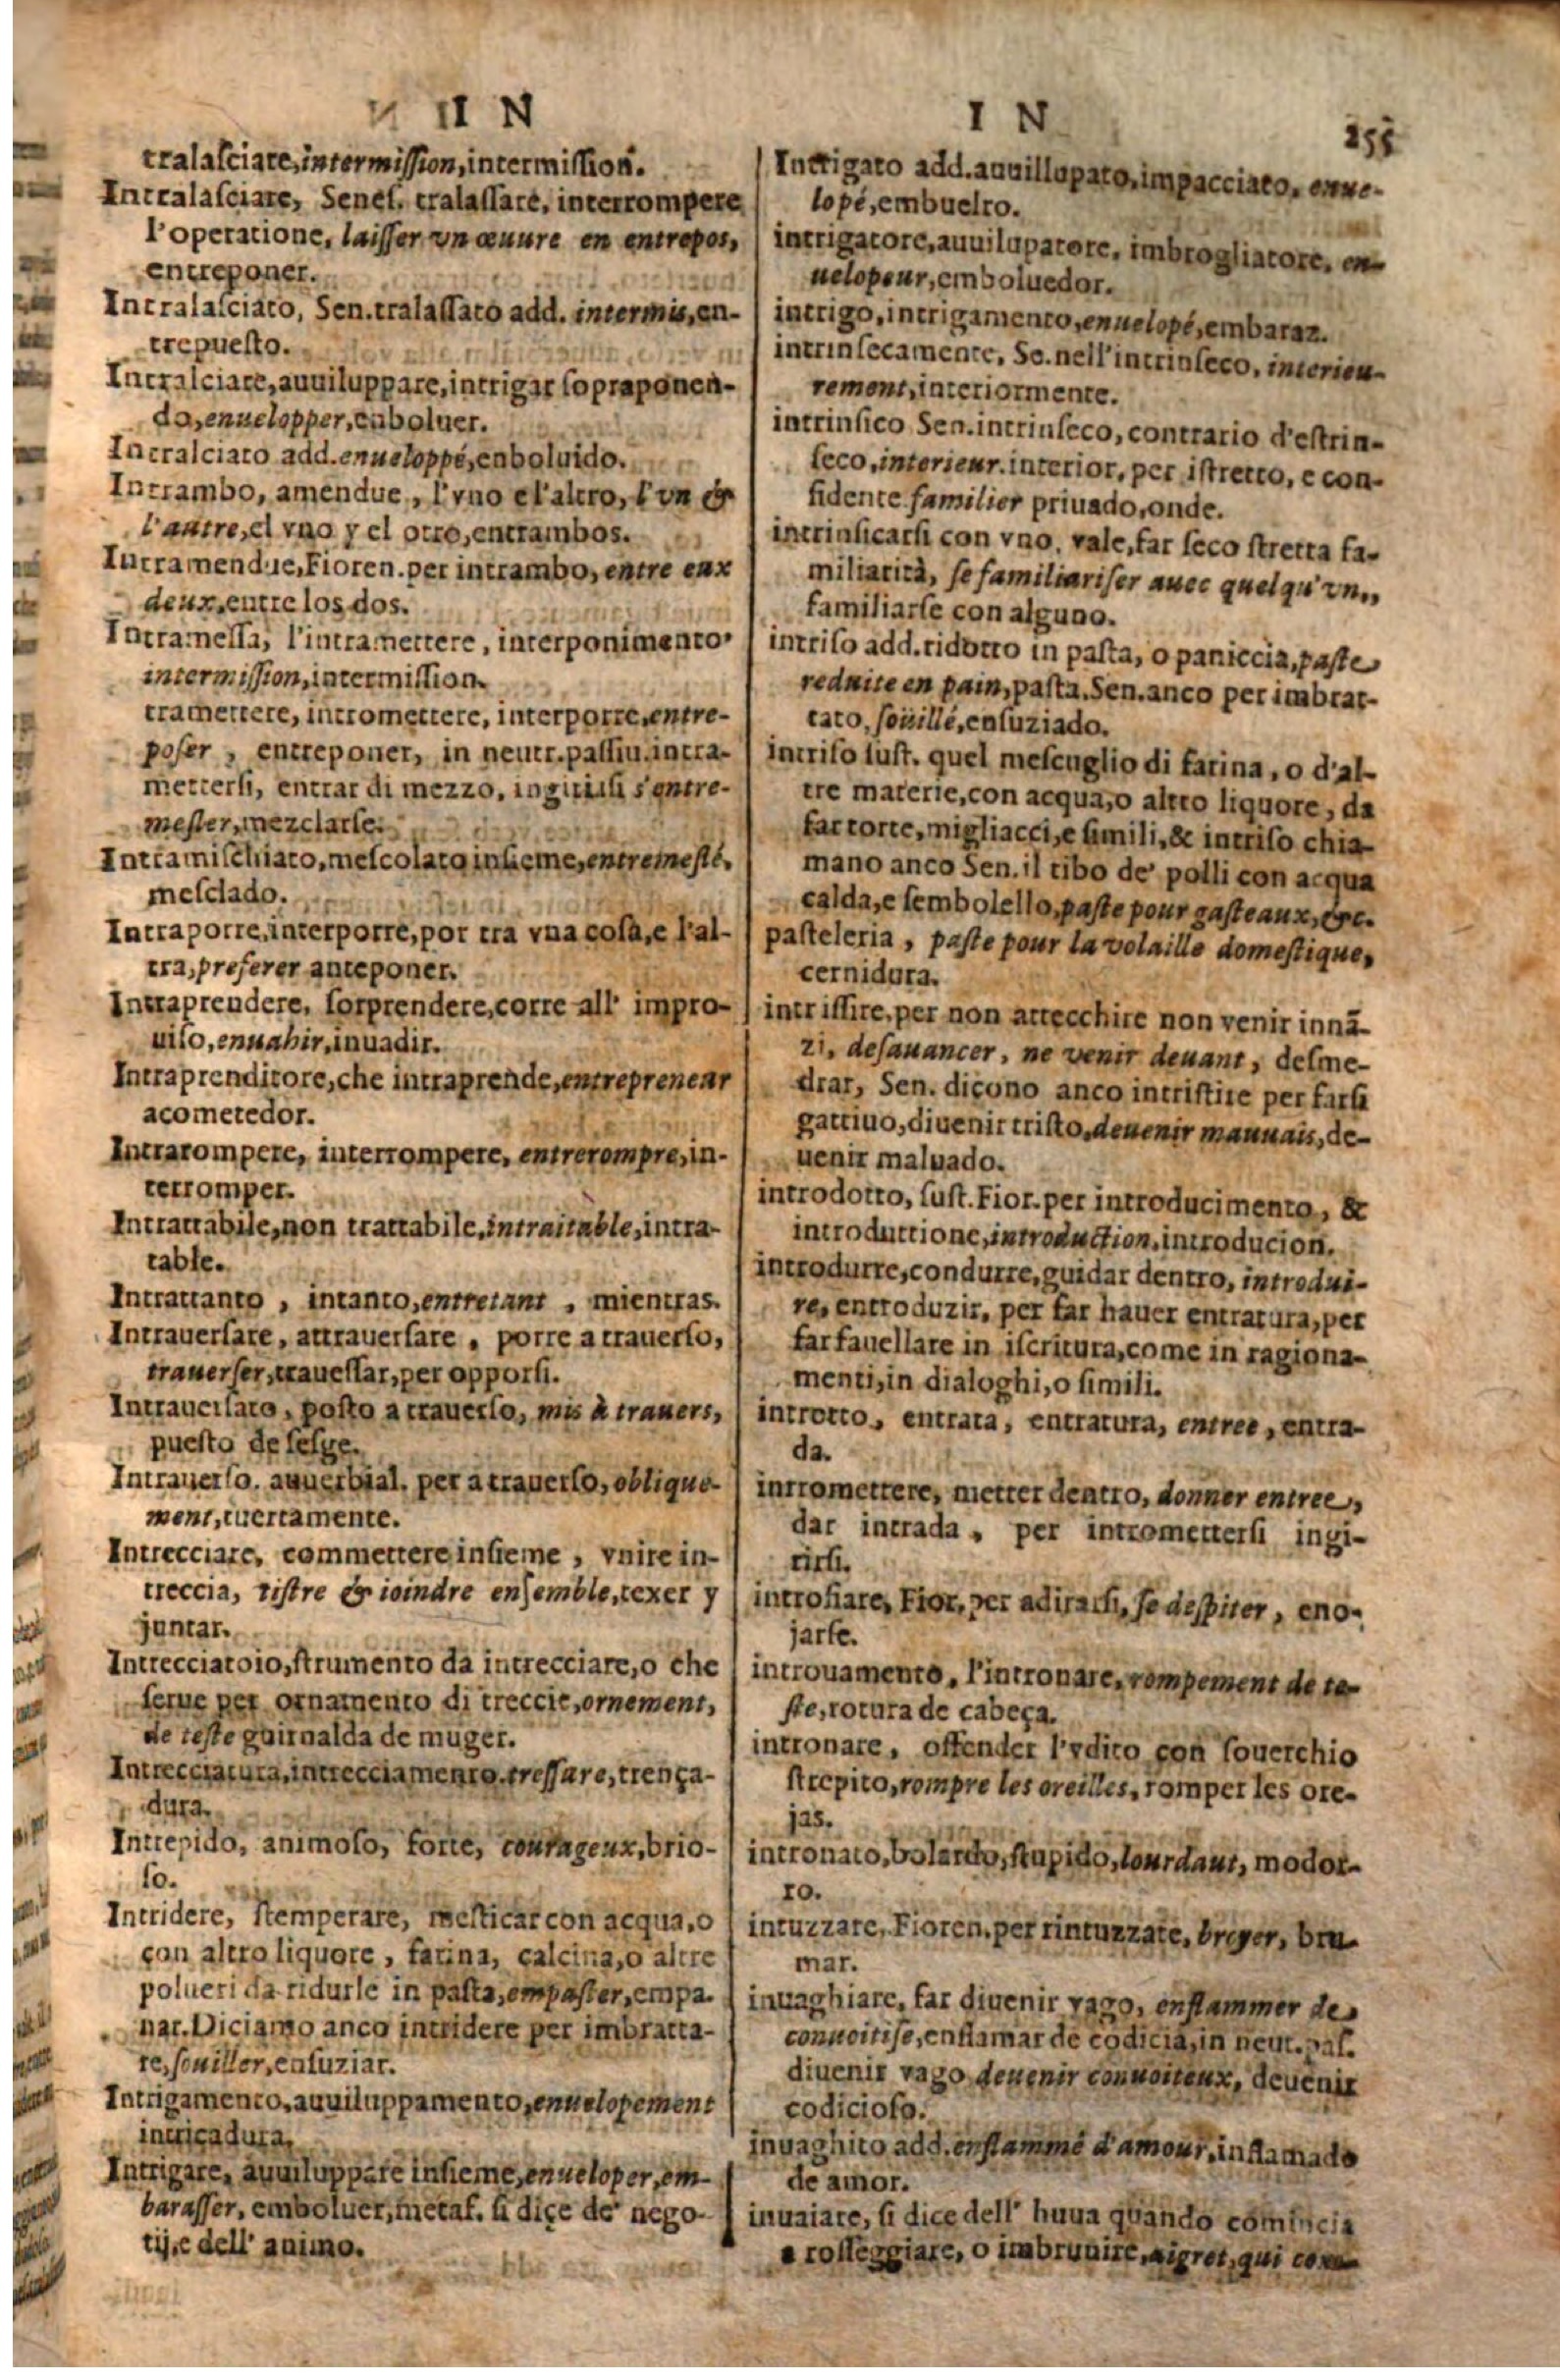 IN
tralaſciare,intermiſſion,intermiſſion.
Intralaſciare, Seneſ. tralaſſare, interrompere
l'operatione, laiſſer vn œuure en entrepos,
entreponer.
Intralaſciato, Sen.tralaſſato add. intermis,en-
trepueſto.
Intralciare,auuiluppare,intrigar ſopraponen-
do,enuelopper,enboluer.
Intralciato add.enueloppé,enboluido.
Intrambo, amendue, l'vno e l'altro, l'vn &
l'autre,el vno y el otro,entrambos.
Intramendue,Fioren.per intrambo, entre eux
deux,entre los dos.
Intrameſſa, l'intramettere, interponimento,
intermiſſion,intermiſſion.
tramettere, intromettere, interporre,entre-
poſer, entreponer, in neutr.paſſiu.intra-
metterſi, entrar di mezzo, s'entre-
meſler,mezclarſe.
Intramiſchiato,meſcolato inſieme,entremeſlé,
meſclado.
Intraporre,interporre,por tra vna coſa,e l'al-
tra,preferer anteponer.
Intraprendere, ſorprendere,corre all' impro-
uiſo,enuahir,inuadir.
Intraprenditore,che intraprende,entrepreneur
acometedor.
Intrarompere, interrompere, entrerompre,in-
terromper.
Intrattabile,non trattabile,intraitable,intra-
table.
Intrattanto, intanto,entretant, mientras.
Intrauerſare, attrauerſare, porre a trauerſo,
trauerſer,traueſſar,per opporſi.
Intrauerſato, poſto a trauerſo, mis à trauers,
pueſto de ſeſge.
Intrauerſo. auuerbial. per a trauerſo, oblique-
ment,tuertamente.
Intrecciare, commettere inſieme, vnire in-
treccia, tiſtre & ioindre enſemble,texer y
juntar.
Intrecciatoio,ſtrumento da intrecciare,o che
ſerue per ornamento di treccie,ornement,
de teſte guirnalda de muger.
Intrecciatura,intrecciamento.treſſure,trença-
dura.
Intrepido, animoſo, forte, courageux,brio-
ſo.
Intridere, ſtemperare, meſticar con acqua,o
con altro liquore, farina, calcina,o altre
polueri da ridurle in paſta,empaſter,empa.
nar.Diciamo anco intridere per imbratta-
re,ſouiller,enſuziar.
Intrigamento,auuiluppamento,enuelopement
intricadura.
Intrigare, auuiluppare inſieme,enueloper,em-
baraſſer, emboluer,metaf. ſi dice de' nego-
tij,e dell' animo.
IN
255
Intrigato add.auuillupato,impacciato, enue-
lopé,embuelto.
intrigatore,auuilupatore, imbrogliatore, en-
uelopeur,emboluedor.
intrigo,intrigamento,enuelopé,embaraz.
intrinſecamente, Se.nell'intrinſeco, interieu-
rement,interiormente.
intrinſico Sen.intrinſeco, contrario d'eſtrin-
ſeco,interieur.interior, per iſtretto, e con-
fidente familier priuado,onde.
intrinſicarſi con vno, vale,far ſeco ſtretta fa-
miliarità, ſe familiariſer auec quelqu'vn,,
familiarſe con alguno.
intriſo add.ridotto in paſta, o paniccia,paſte
reduite en pain,paſta.Sen.anco per imbrat-
tato,ſoüillé,enſuziado.
intriſo ſuſt. quel meſcuglio di farina, o d'al-
tre materie,con acqua,o altro liquore, da
far torte,migliacci,e ſimili,& intriſo chia-
mano anco Sen.il tibo de' polli con acqua
calda,e ſembolello,paſte pour gaſteaux,&c.
paſteleria, paſte pour la volaille domeſtique,
cernidura.
intriſſire,per non attecchire non venir innã-
zi, deſauancer, ne venir deuant, deſme-
drar, Sen. dicono anco intriſtire per farſi
gattiuo,diuenir triſto,deuenir mauuais,de-
uenir maluado.
introdotto, ſuſt.Fior.per introducimento, &
introduttione,introduction.introducion.
introdurre,condurre,guidar dentro, introdui-
re, entroduzir, per far hauer entratura,per
far fauellare in iſcritura,come in ragiona-
menti,in dialoghi,o ſimili.
introtto, entrata, entratura, entree, entra-
da.
inrromettere, metter dentro, donner entree,
dar intrada, per intrometterſi ingi-
rirſi.
introfiare, Fior.per adirarſi, ſe deſpiter, eno-
jarſe.
introuamento, l'intronare, rompement de te-
ſte,rotura de cabeça.
intronare, offender l'vdito con ſouerchio
ſtrepito,rompre les oreilles, romper les ore-
jas.
intronato,bolardo,ſtupido,lourdaut, modor-
ro.
intuzzare, Fioren.per rintuzzare, breyer, bru-
mar.
inuaghiare, far diuenir vago, enflammer de
conuoitiſe,enflamar de codicia,in neut.paſ.
diuenir vago deuenir conuoiteux, deuenir
codicioſo.
inuaghito add.enflammé d'amour,inflamado
de amor.
inuaiare, ſi dice dell' huua quando comincia
a roſſeggiare, o imbrunire,aigret,qui com-